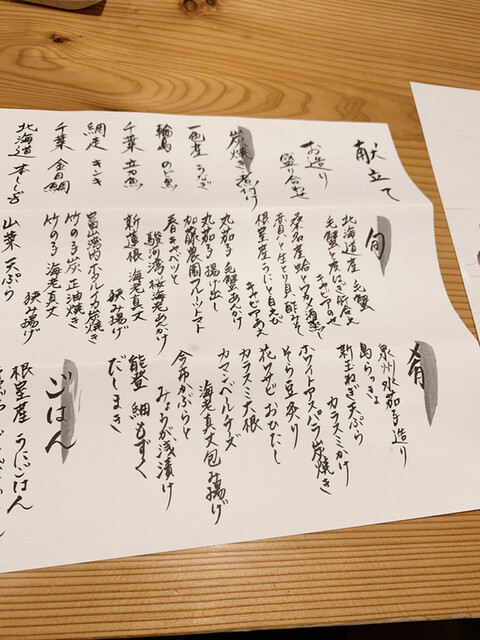 献立て
お造り
盛り合わせ
炭焼き 煮付け
一色産 うなぎ
輪島 のど黒
千葉 立魚
網走 キンキ
千葉 金目鯛
北海道 本ししゃも
旬
北海道産 毛蟹
毛蟹と皮はぎ肝合え
キャビアのせ
桑名産蛤とワカメ酒蒸し
赤貝と生とり貝酢みそ
根室産うにと白えび
キャビアあえ
丸茄子 毛蟹あんかけ
丸茄子 揚げ出し
加藤農園フルーツトマト
春キャベツと
駿河湾 桜海老あんかけ
新蓮根 海老真丈
挟み揚げ
富山湾内ホタルイカ炭焼き
竹の子炭正油焼き
竹の子 海老真丈
挟み揚げ
山菜 天ぷら
肴
泉州水茄子造り
島らっきょ
新玉ねぎ天ぷら
カラスミかけ
ホワイトアスパラ炭焼き
そら豆炙り
花ワサビおひたし
カラスミ大根
カマンベールチーズ
海老真丈包み揚げ
今市かぶらと
みょうが浅漬け
能登 細もずく
だしまき
ごはん
根室産 うにごはん